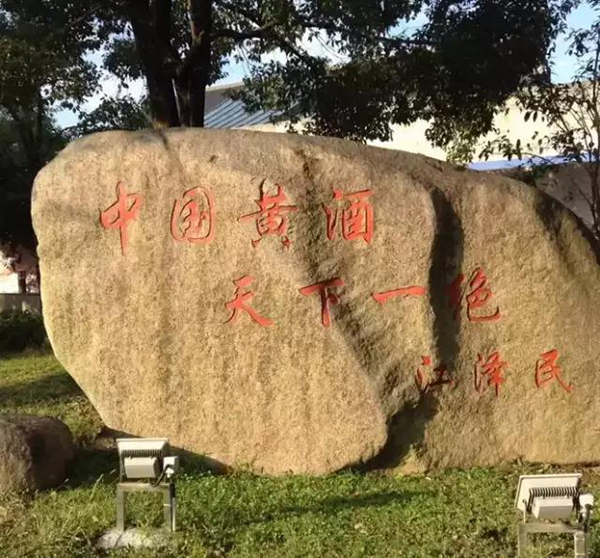 中国黄酒
天下一绝
江泽民